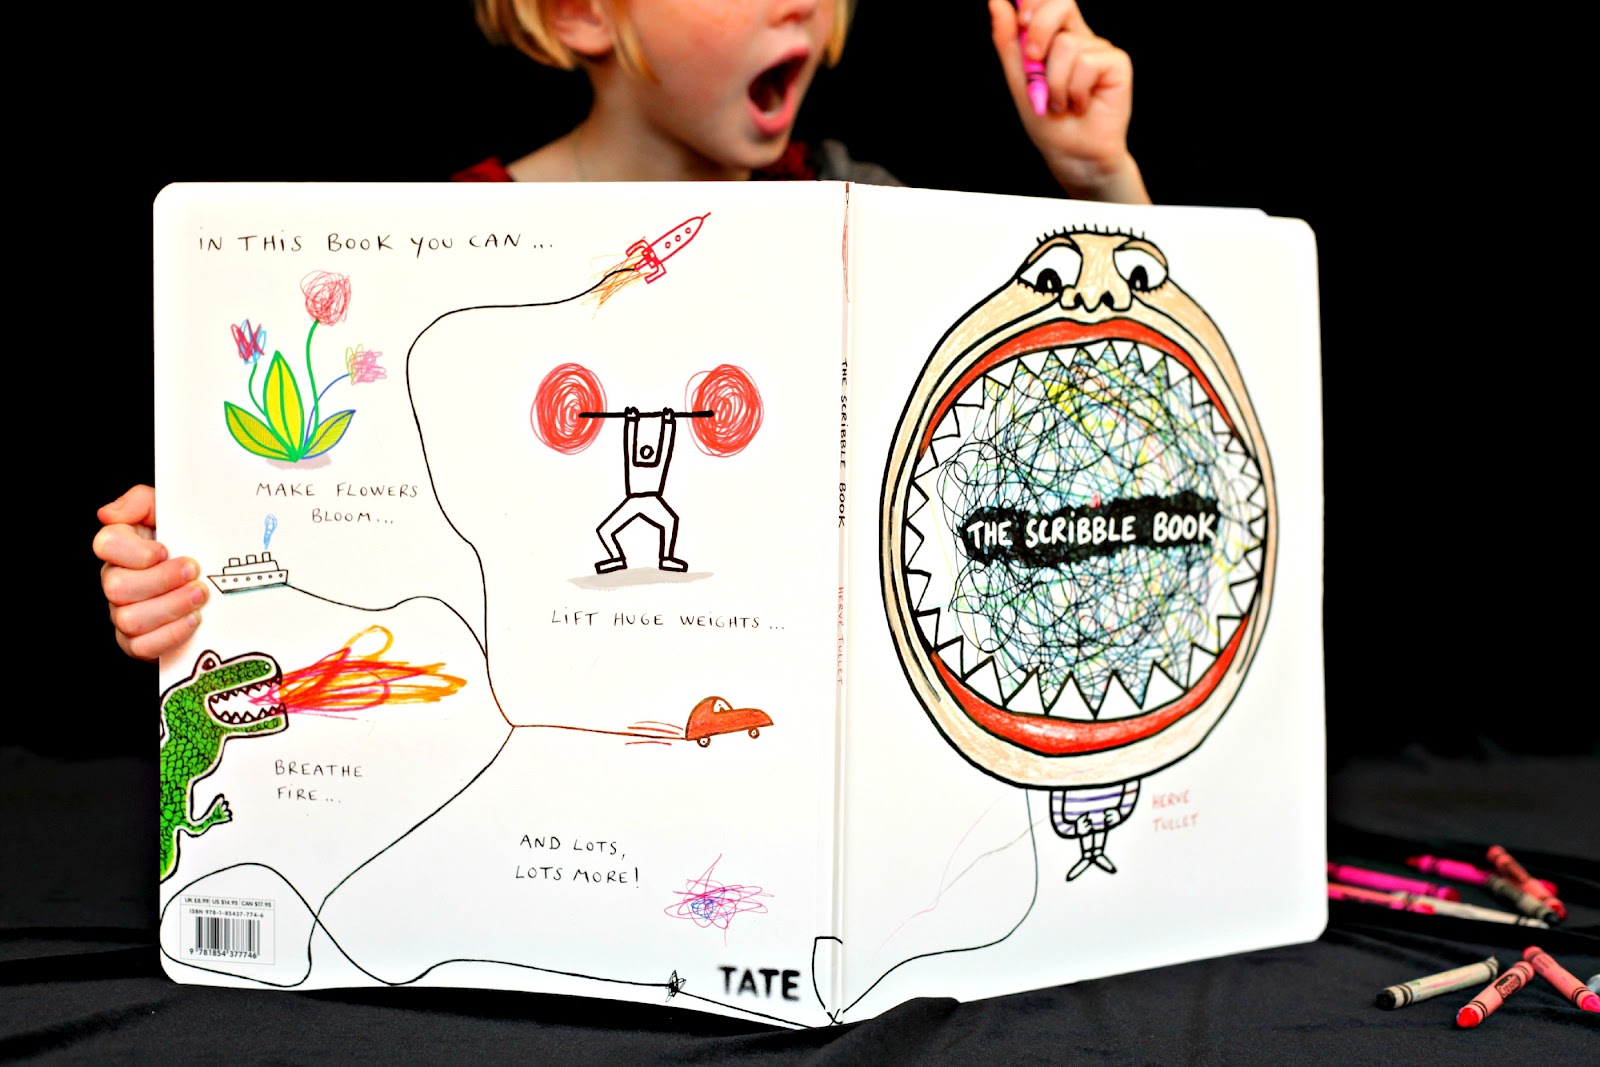 iN THiS BOOK YOU CAN...
MAKE FLOWERS
BLOOM...
LiFT HUGE WEiGHTS...
BREATHE
FiRE...
AND LOTS,
LOTS MORE!
UK £8.99 US $14.95 CAN $17.95
ISBN 978-1-85437-774-6
9 781854 377746
TATE
THE SCRiBBLE BOOK
HERVÉ TULLET
THE SCRiBBLE BOOK
HERVÉ
TULLET